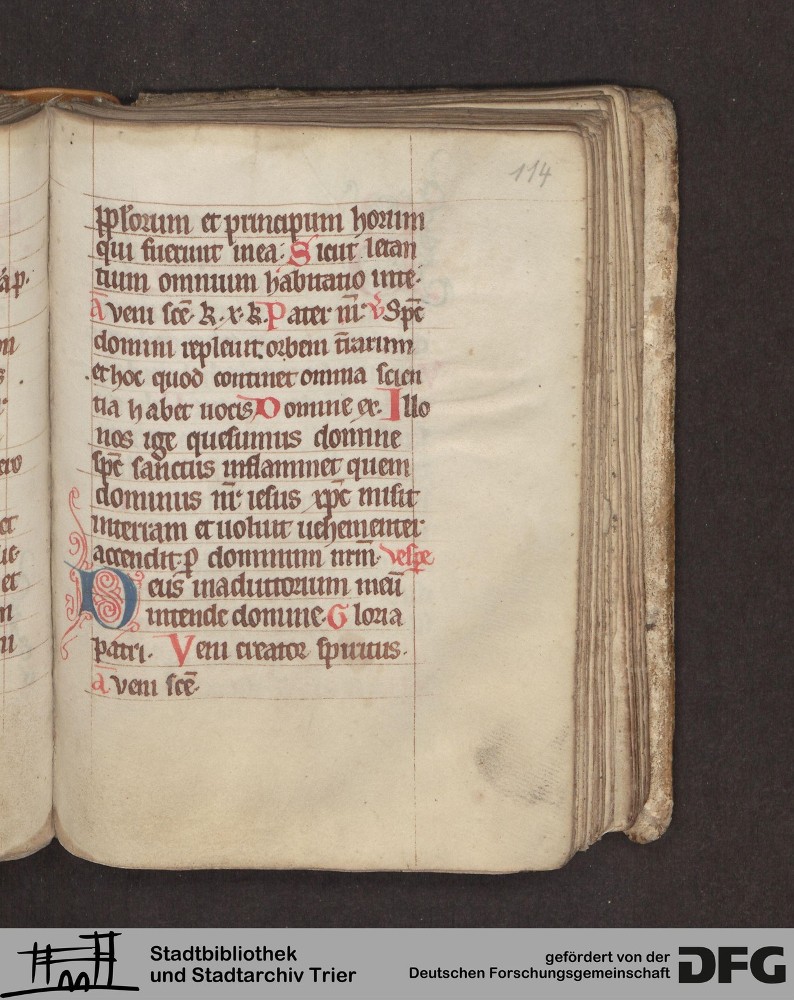 114
pplorum et principum horum
qui fuerunt in ea. Sicut letan
tium omnium habitatio in te.
A veni sce. k. x. k. Pater nr. V Spc
domini repleuit orbem tiarum
et hoc quod continet omnia scien
tia habet uocis Domine ex. Illo
nos ige quesumus domine
spc sanctus inflammet quem
dominus nr iesus xpc misit
in terram et uoluit uehementer
accendit. p dominum nrm. Vespe
Deus in adiutorium meu
intende domine. Gloria
patri. Veni creator spiritus.
A veni sce.
Stadtbibliothek
und Stadtarchiv Trier
gefördert von der
Deutschen Forschungsgemeinschaft
DFG